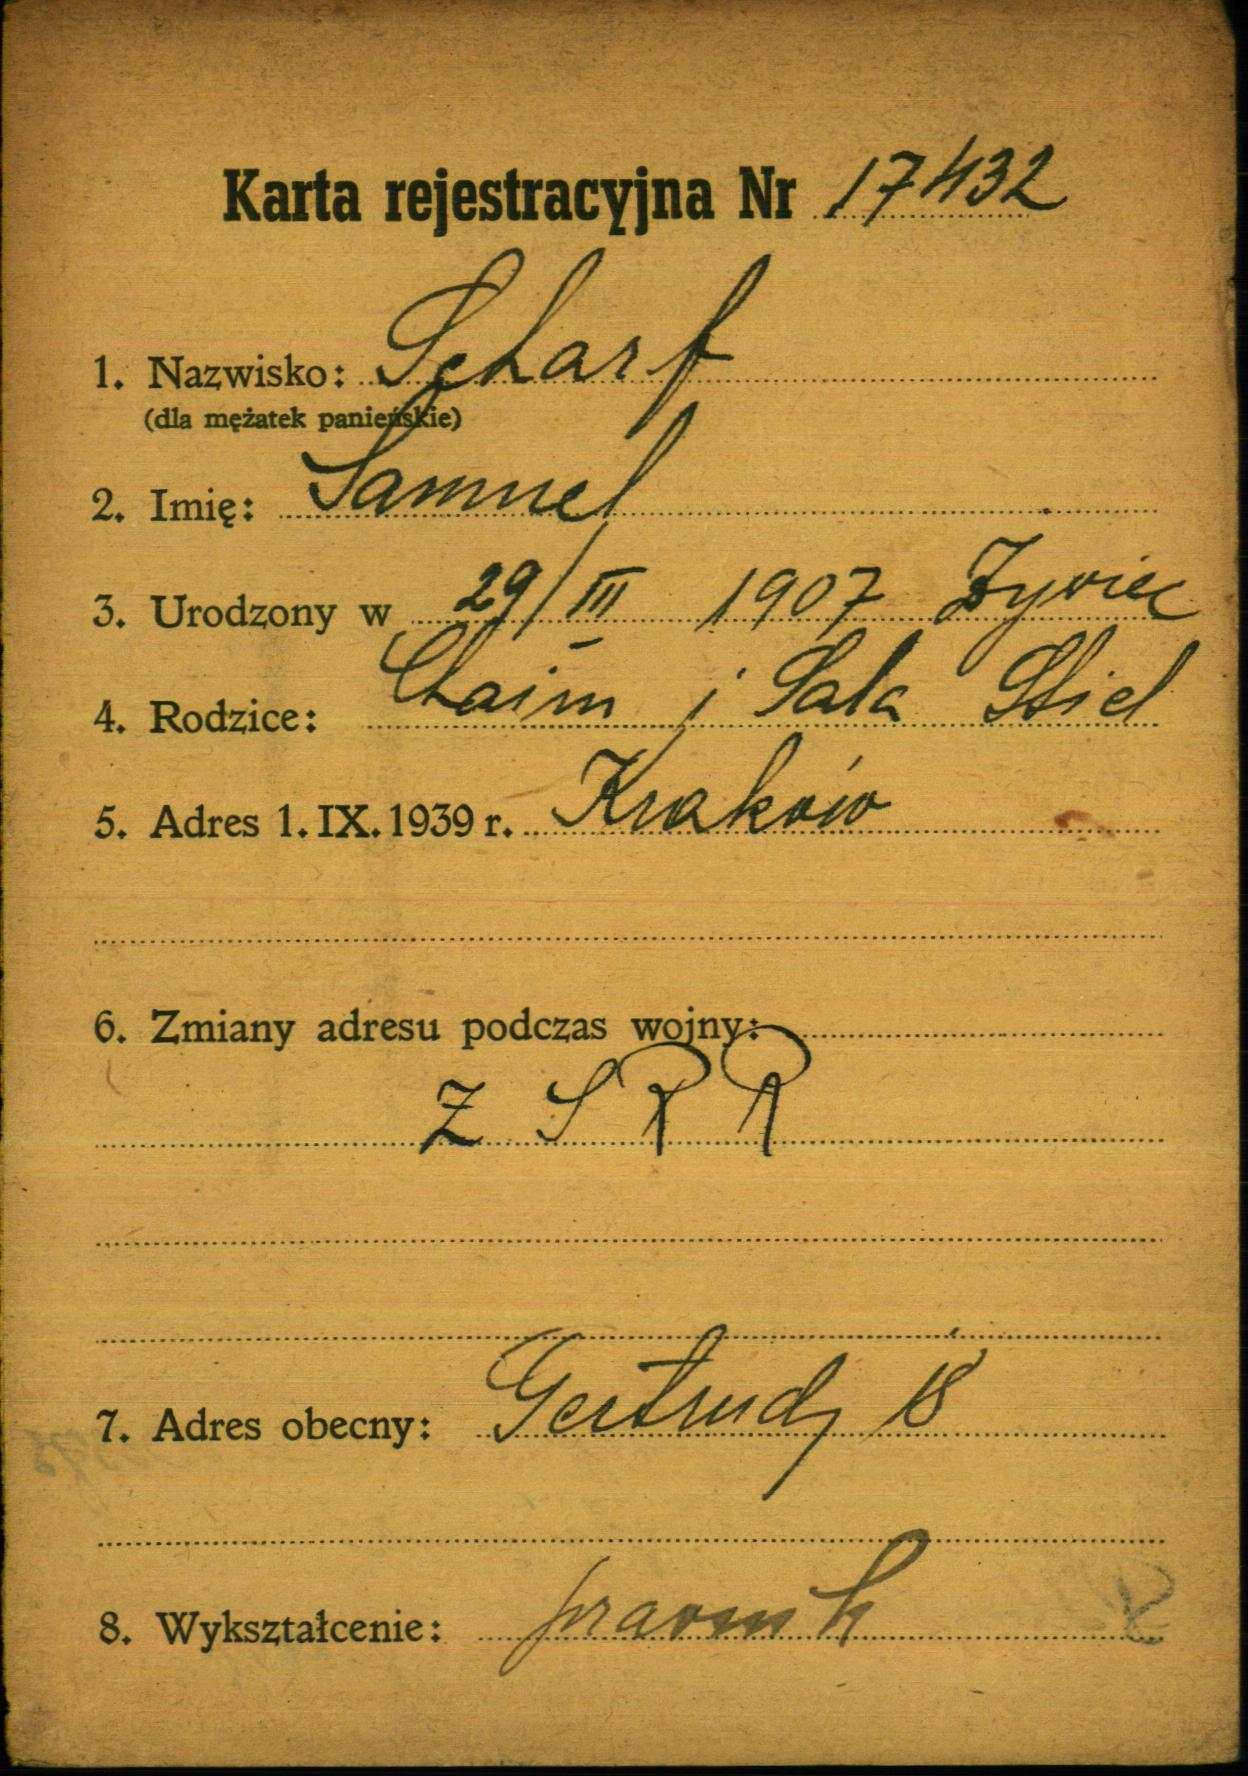 Karta rejestracyjna Nr 17432
1. Nazwisko: Scharf
(dla mężatek panieńskie)
2. Imię: Samuel
3. Urodzony w 29/III 1907 Żywiec
4. Rodzice: Chaim i Sala Stiel
5. Adres 1. IX. 1939 r. Kraków
6. Zmiany adresu podczas wojny:
Z S R R
7. Adres obecny: Gertrudy 18
8. Wykształcenie: prawnik